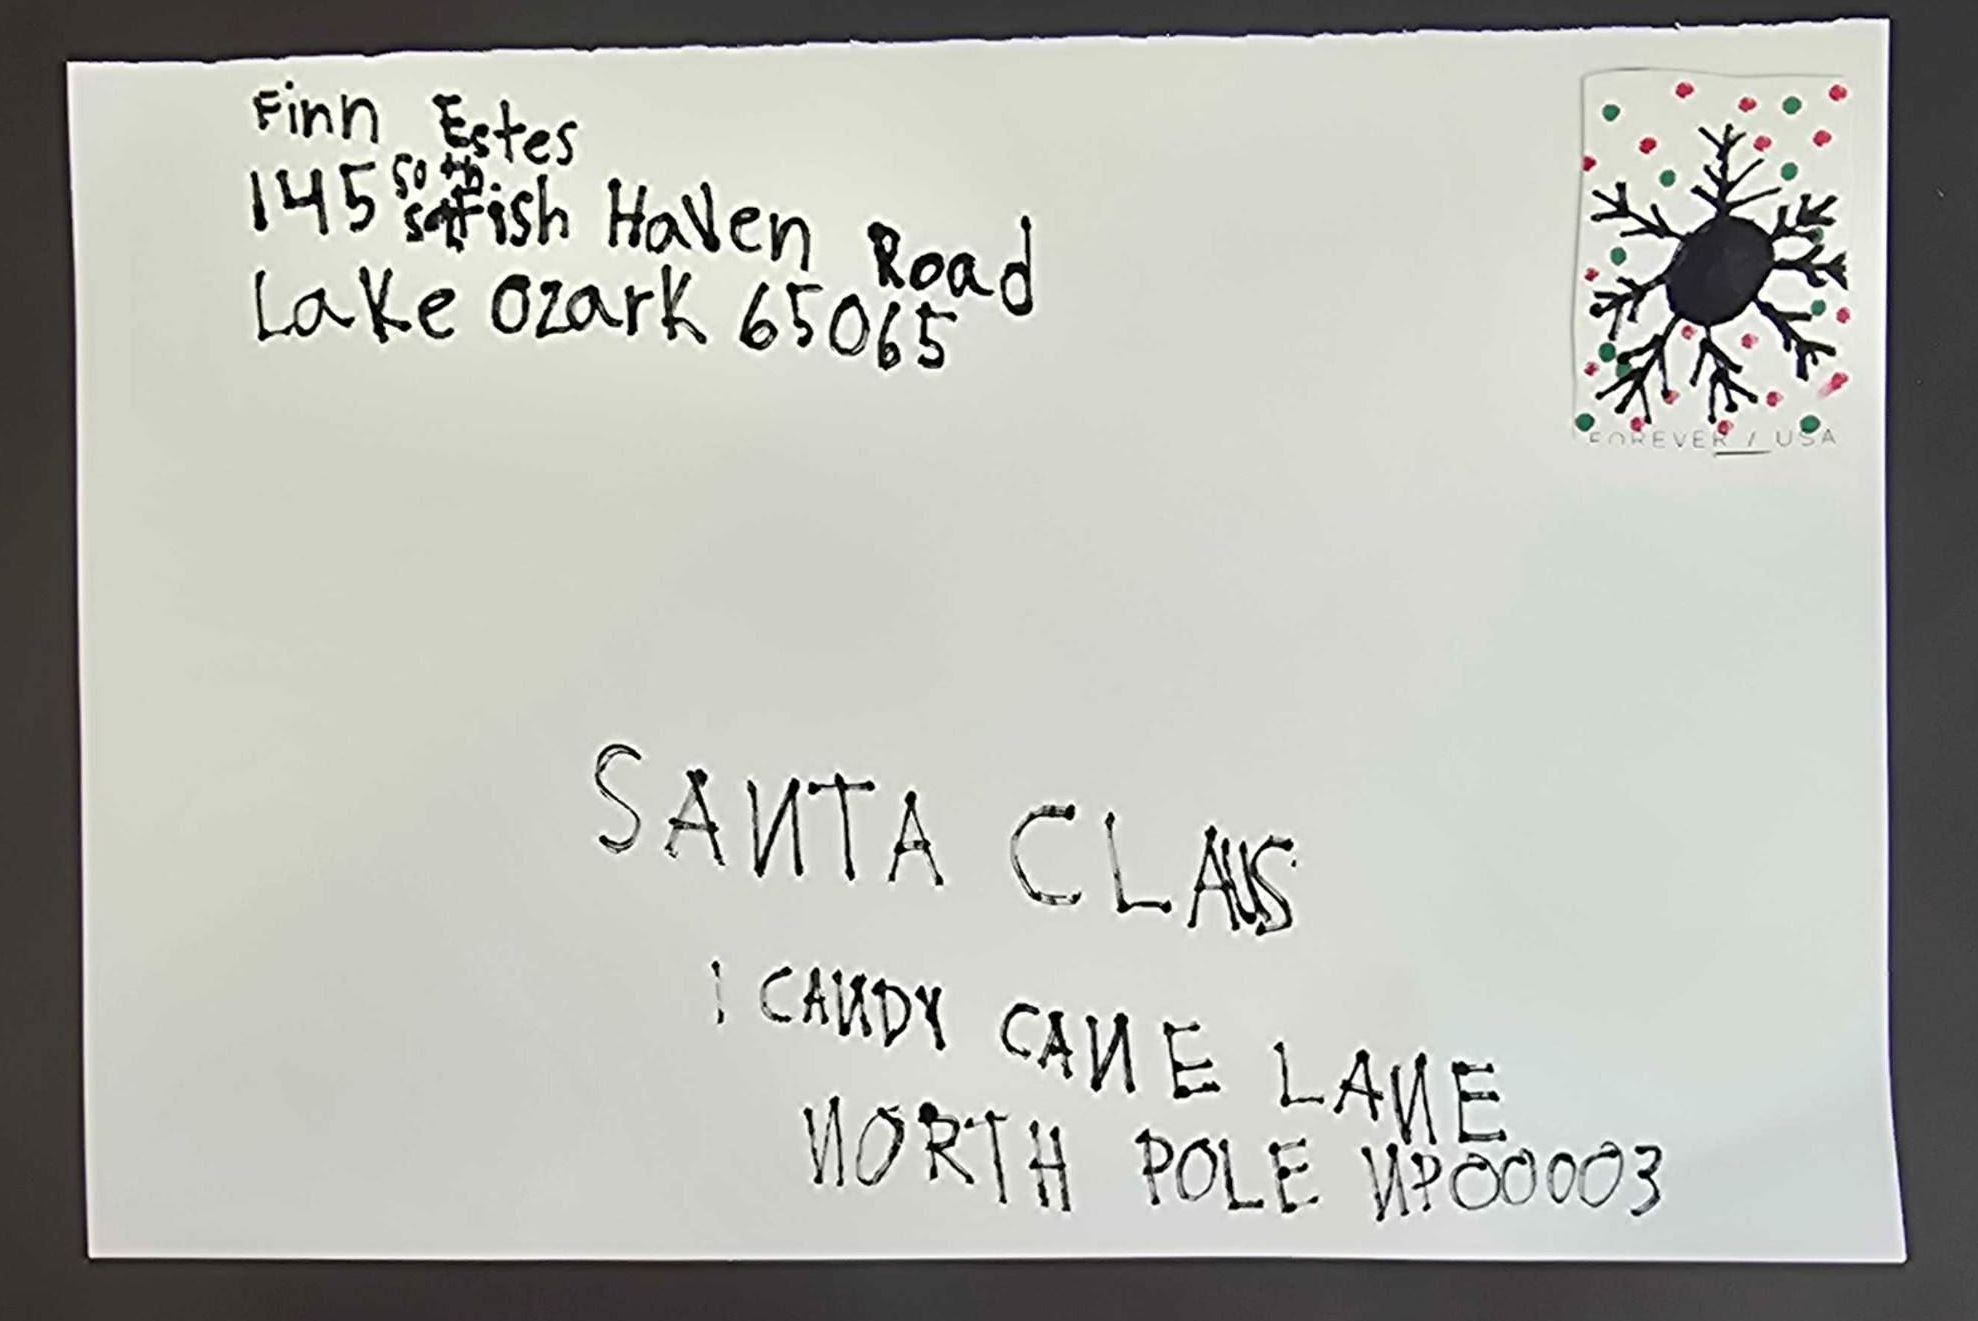 Finn Estes
145 Haven Road
Lake Ozark 65065
FOREVER / USA
SANTA CLAUS
1 CANDY CANE LANE
NORTH POLE NP00003